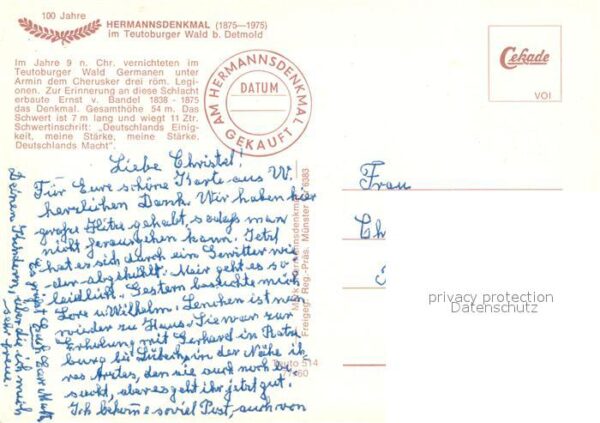 100 Jahre
HERMANNSDENKMAL (1875—1975)
im Teutoburger Wald b. Detmold
Im Jahre 9 n. Chr. vernichteten im
Teutoburger Wald Germanen unter
Armin dem Cherusker drei röm. Legi-
onen. Zur Erinnerung an diese Schlacht
erbaute Ernst v. Bandel 1838 - 1875
das Denkmal. Gesamthöhe 54 m. Das
Schwert ist 7 m lang und wiegt 11 Ztr.
Schwertinschrift: „Deutschlands Einig-
keit, meine Stärke, meine Stärke,
Deutschlands Macht".
AM HERMANNSDENKMAL
DATUM
GEKAUFT
Cekade
VOI
Liebe Christel!
Für Eure schöne Karte aus W.
herzlichen Dank. Wir haben hier
große Hitze gehabt, sodaß man
nicht herausgehen kann. Jetzt
hat es sich durch ein Gewitter wie-
der abgekühlt. Mir geht es so
leidlich. Gestern besuchte mich
Lore u. Wilhelm. Lenchen ist nun
wieder zu Haus. Sie war zur
Erholung mit Gerhard in Ratze
burg bei Lübeck, in der Nähe ih
res Arztes, den sie auch noch be
sucht, aber es geht ihr jetzt gut.
Ich bekomme soviel Post, auch von
Deinen Kindern, über die ich mich
sehr freue.
Es grüßt Euch Eure Mutti
Frau
Ch
Freigeg. Reg.-Präs. Münster
6083
514
privacy protection
Datenschutz